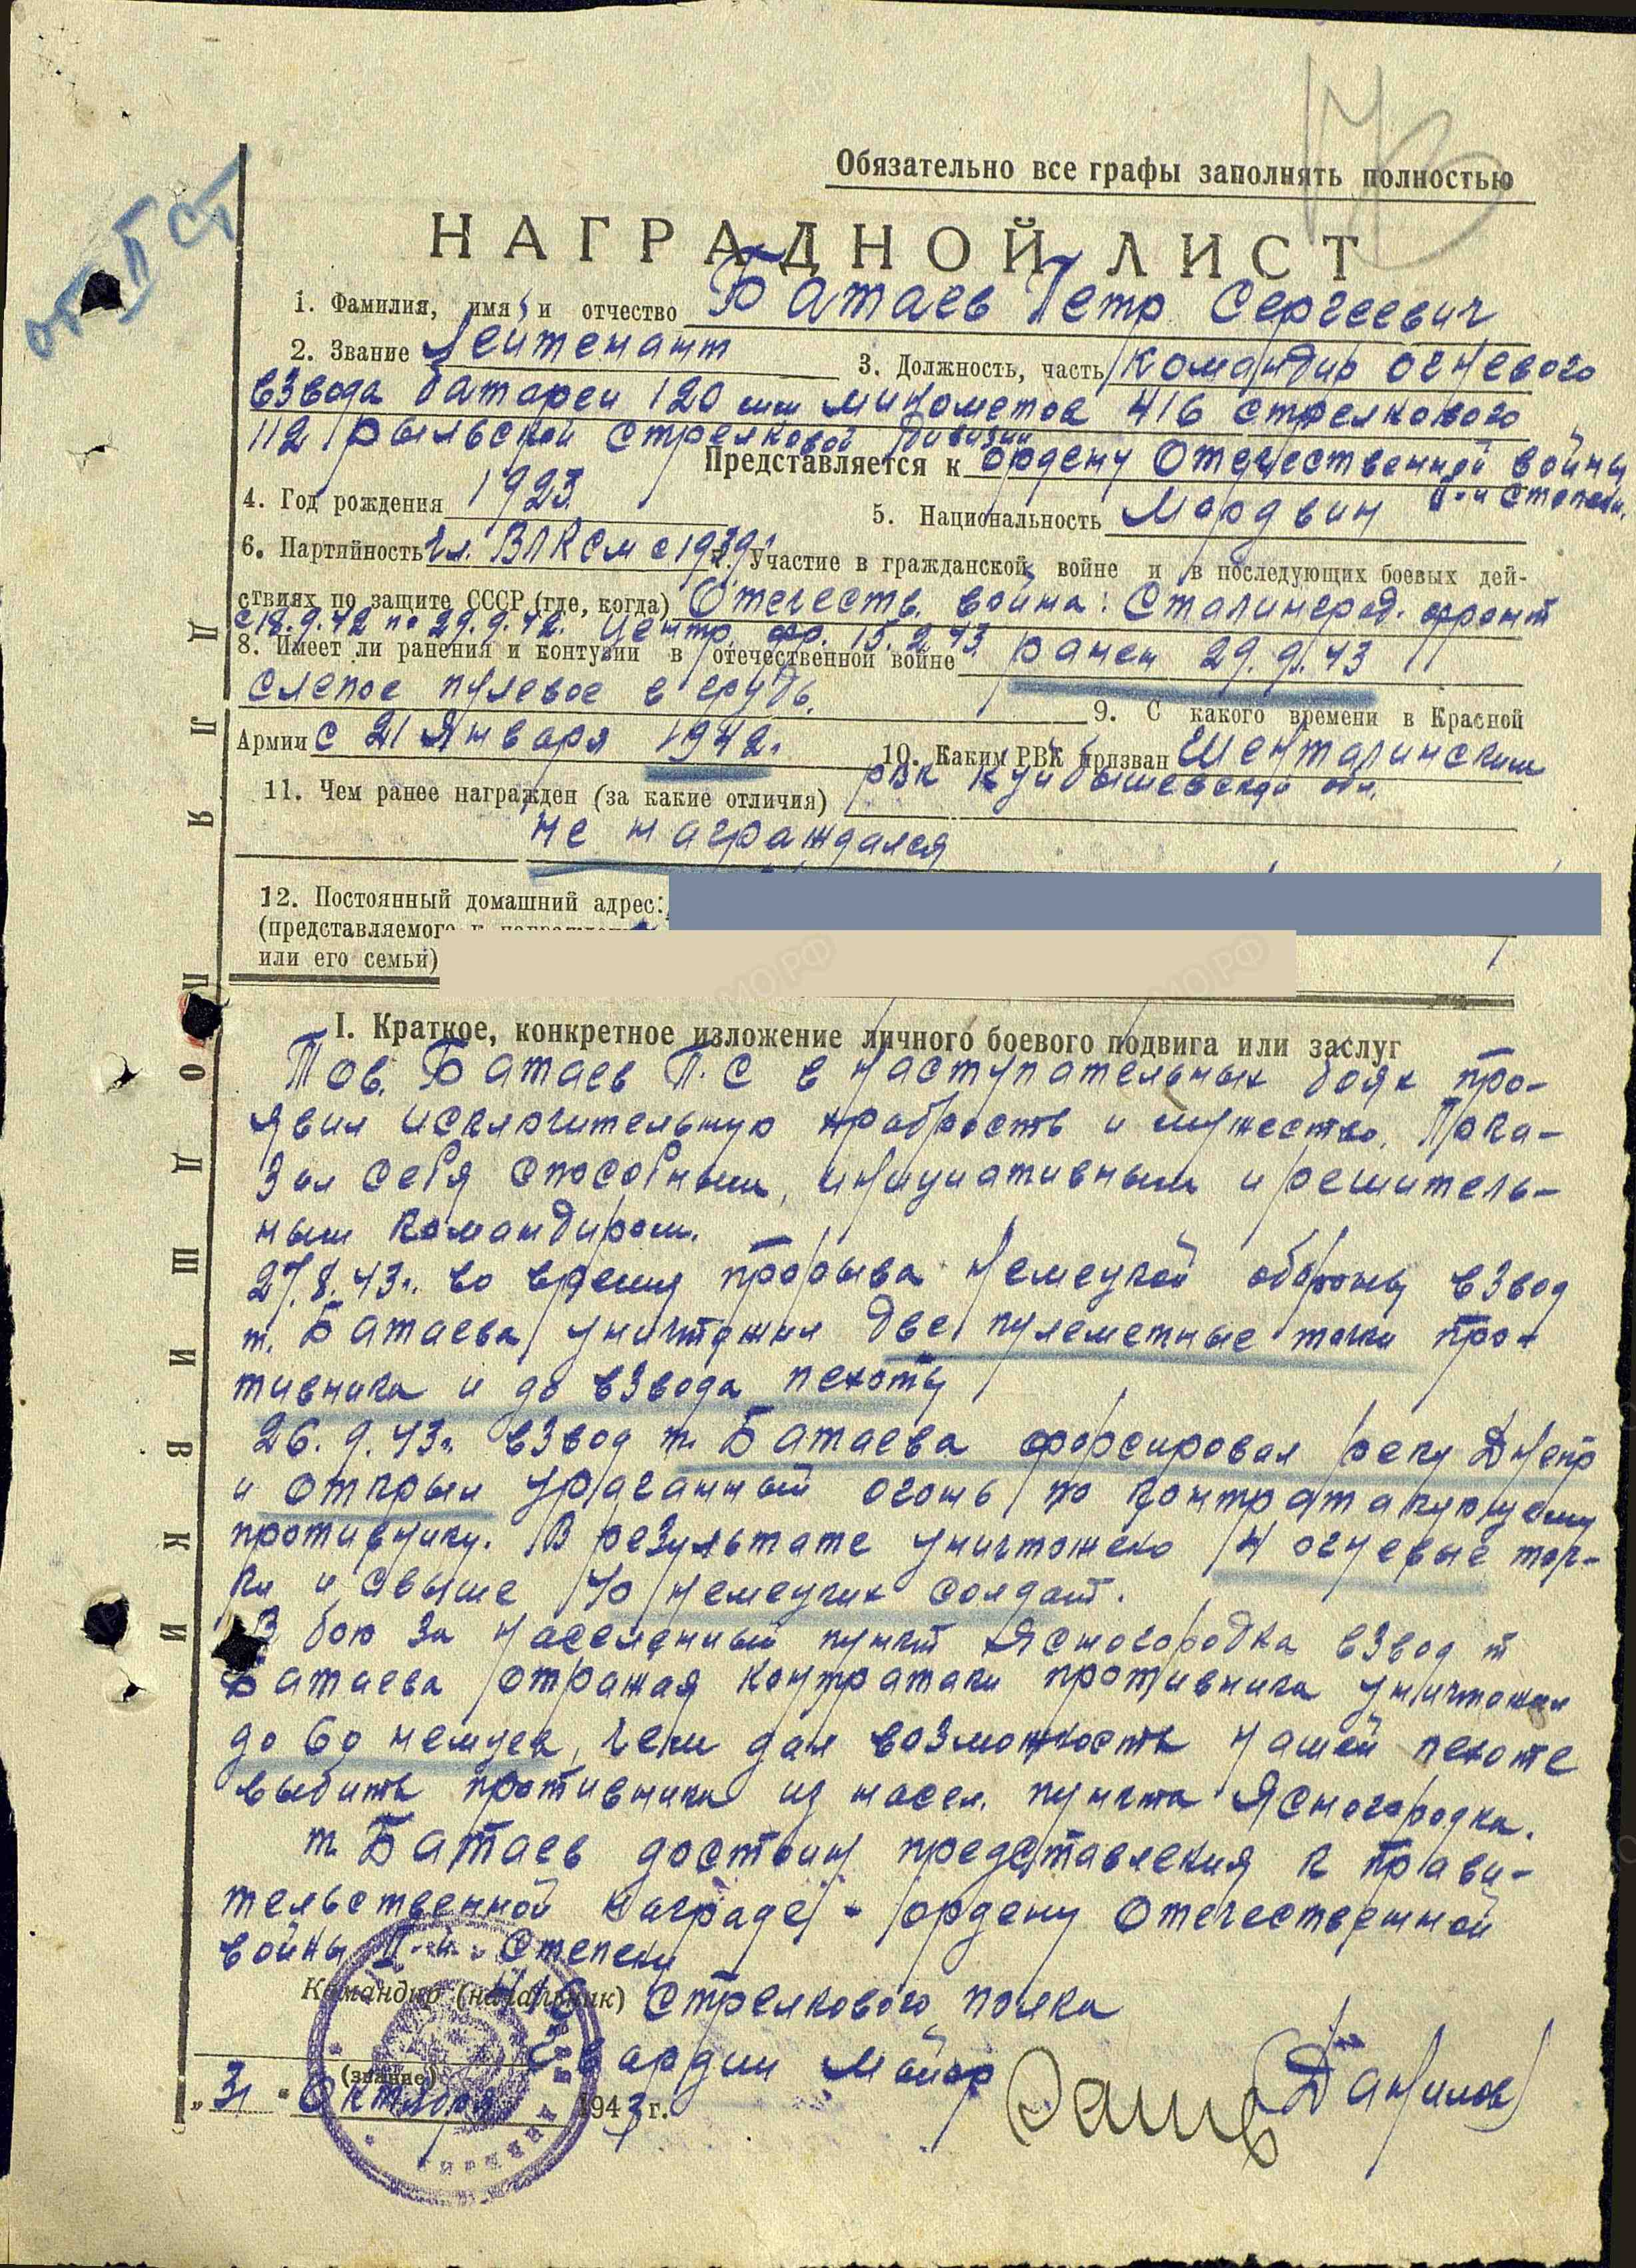 от. II ст
Обязательно все графы заполнять полностью
НАГРАДНОЙ ЛИСТ
1. Фамилия, имя и отчество Батаев Петр Сергеевич
2. Звание Лейтенант 3. Должность, часть командир огневого
взвода батареи 120 мм минометов 416 стрелкового
112 Рыльской стрелковой дивизии
Представляется к ордену Отечественной войны
II-й степени.
4. Год рождения 1923 5. Национальность Мордвин
6. Партийность чл. ВЛКСМ с 1939 7. Участие в гражданской войне и в последующих боевых дей-
ствиях по защите СССР (где, когда) Отечеств. война: Сталинград. фронт
с 18.9.42 по 29.9.42. Центр. фр. 15.2.43
8. Имеет ли ранения и контузии в отечественной войне ранен 29.9.43
слепое пулевое в грудь.
9. С какого времени в Красной
Армии с 21 Января 1942г. 10. Каким РВК призван Шенталинским
РВК Куйбышевской обл.
11. Чем ранее награжден (за какие отличия)
не награждался
12. Постоянный домашний адрес:
(представляемого
или его семьи)
I. Краткое, конкретное изложение личного боевого подвига или заслуг
Тов. Батаев П.С в наступательных боях про-
явил исключительную храбрость и мужество. Пока-
зал себя способным, инициативным и решитель-
ным командиром.
27.8.43г. во время прорыва немецкой обороны взвод
т. Батаева уничтожил две пулеметные точки про-
тивника и до взвода пехоты
26.9.43г. взвод т. Батаева форсировал реку Днепр
и открыл ураганный огонь по контратакующему
противнику. В результате уничтожено 4 огневые точ-
ки и свыше 40 немецких солдат.
В бою за населенный пункт Ясногородка взвод т
Батаева отражая контратаки противника уничтожил
до 60 немцев, чем дал возможность нашей пехоте
выбить противника из насел. пункта Ясногородка.
т. Батаев достоин представления к прави-
тельственной награде - ордену Отечественной
войны II-й степени
Командир (начальник) 416 стрелкового полка
Гвардии Майор (Данилов)
(звание)
„31" октября 1943 г.
ПОДШИВКИ
ДЛЯ